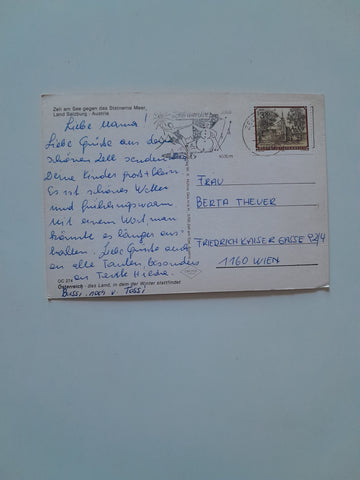 Zell am See gegen das Steinerne Meer,
Land Salzburg - Austria
Liebe Mama!
Liebe Grüße aus dem
schönen Zell senden
Deine Kinder
Es ist schönes Wetter
und frühlingswarm
Mit einem Wort man
könnte es länger aus-
halten. Liebe Grüße auch
an alle Tanten, besonders
an Tante Hilde.
Österreich - das Land, in dem der Winter stattfindet
Bussi v. Tussi
FRAU
BERTA THEUER
FRIEDRICH KAISER GASSE
1160 WIEN